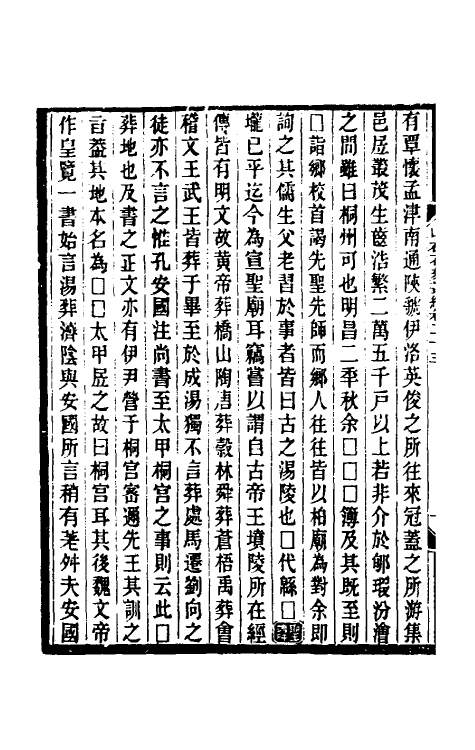 有覃懷孟津南通陝虢伊洛英俊之所往來冠蓋之所游集
邑居叢茂生齒浩繁二萬五千戸以上若非介於郇瑕汾澮
之間雖曰桐州可也明昌二秊秋余□□□簿及其既至則
□詣鄉校首謁先聖先師而鄉人往往皆以柏廟為對余即
詢之其儒生父老習於事者皆曰古之湯陵也□代繇□
壠已平迄今為宣聖廟耳竊嘗以謂自古帝王墳陵所在經
傳皆有明文故黃帝葬橋山陶唐葬穀林舜葬蒼梧禹葬會
稽文王武王皆葬于畢至於成湯獨不言葬處馬遷劉向之
徒亦不言之惟孔安國注尚書至太甲桐宮之事則云此□
葬地也及書之正文亦有伊尹營于桐宮密邇先王其訓之
言葢其地本名為□□太甲居之故曰桐宮耳其後魏文帝
作皇覽一書始言湯葬濟陰與安國所言稍有差舛夫安國